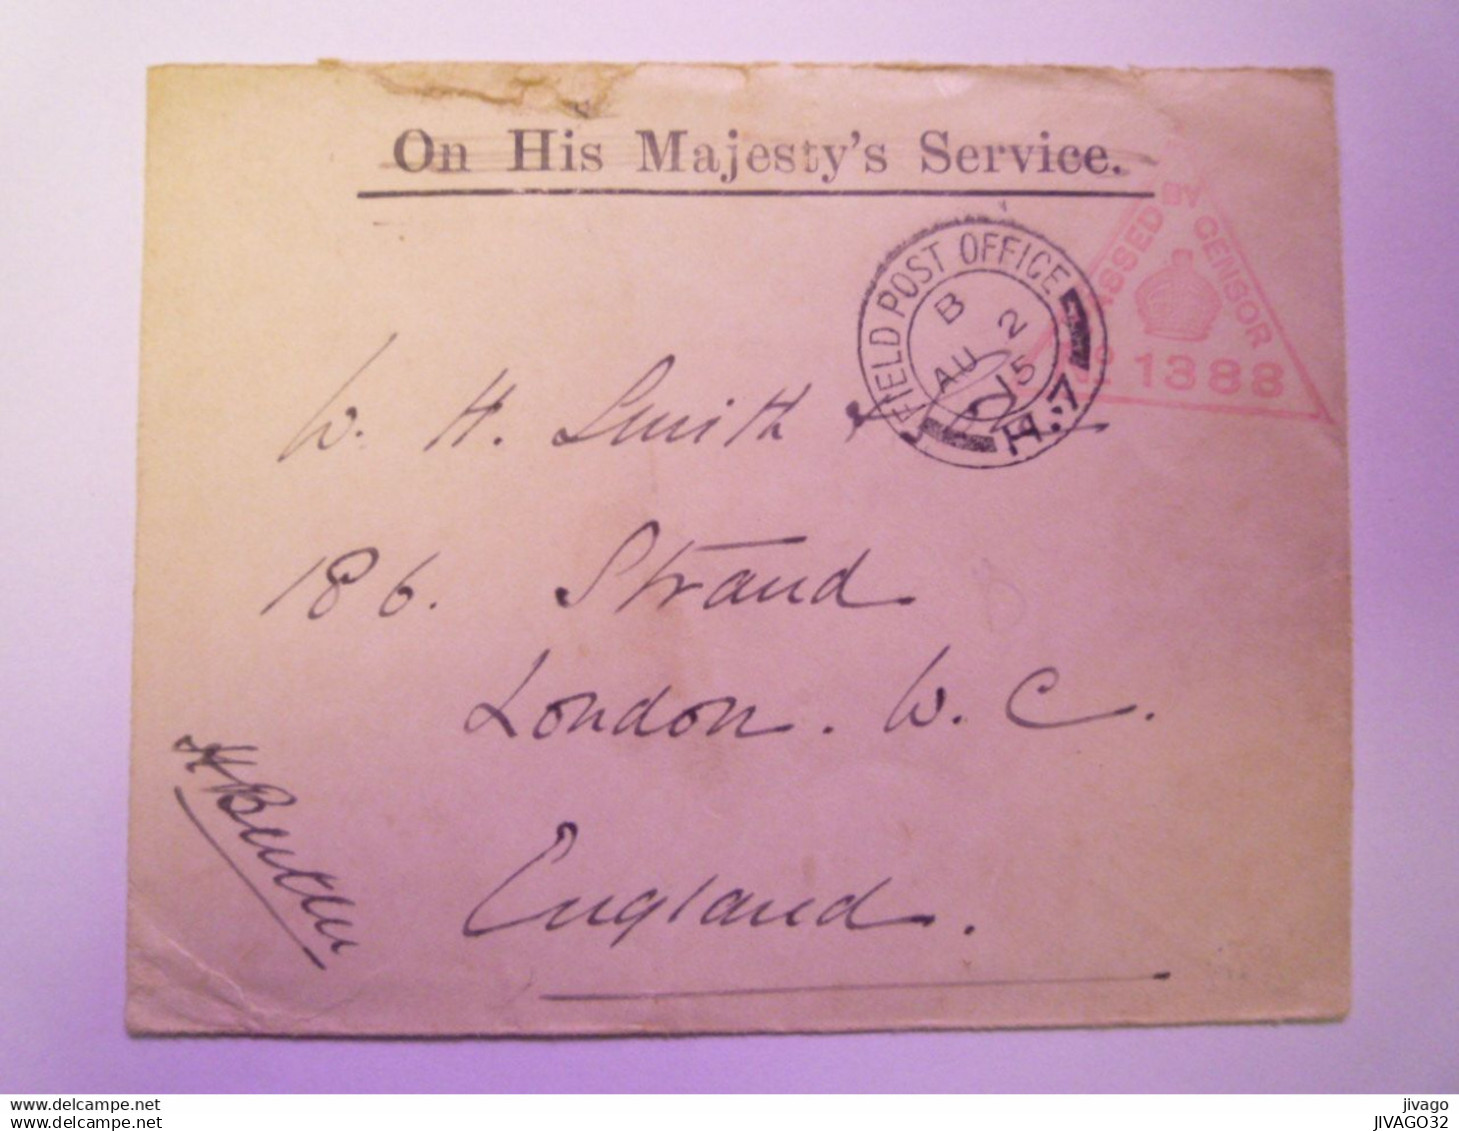 On His Majesty's Service.
PASSED BY CENSOR
No 1388
FIELD POST OFFICE
B
AU 2
15
H.7
W. H. Smith &
186. Strand
London. W. C.
England.
H
www.delcampe.net
jivago
JIVAGO32